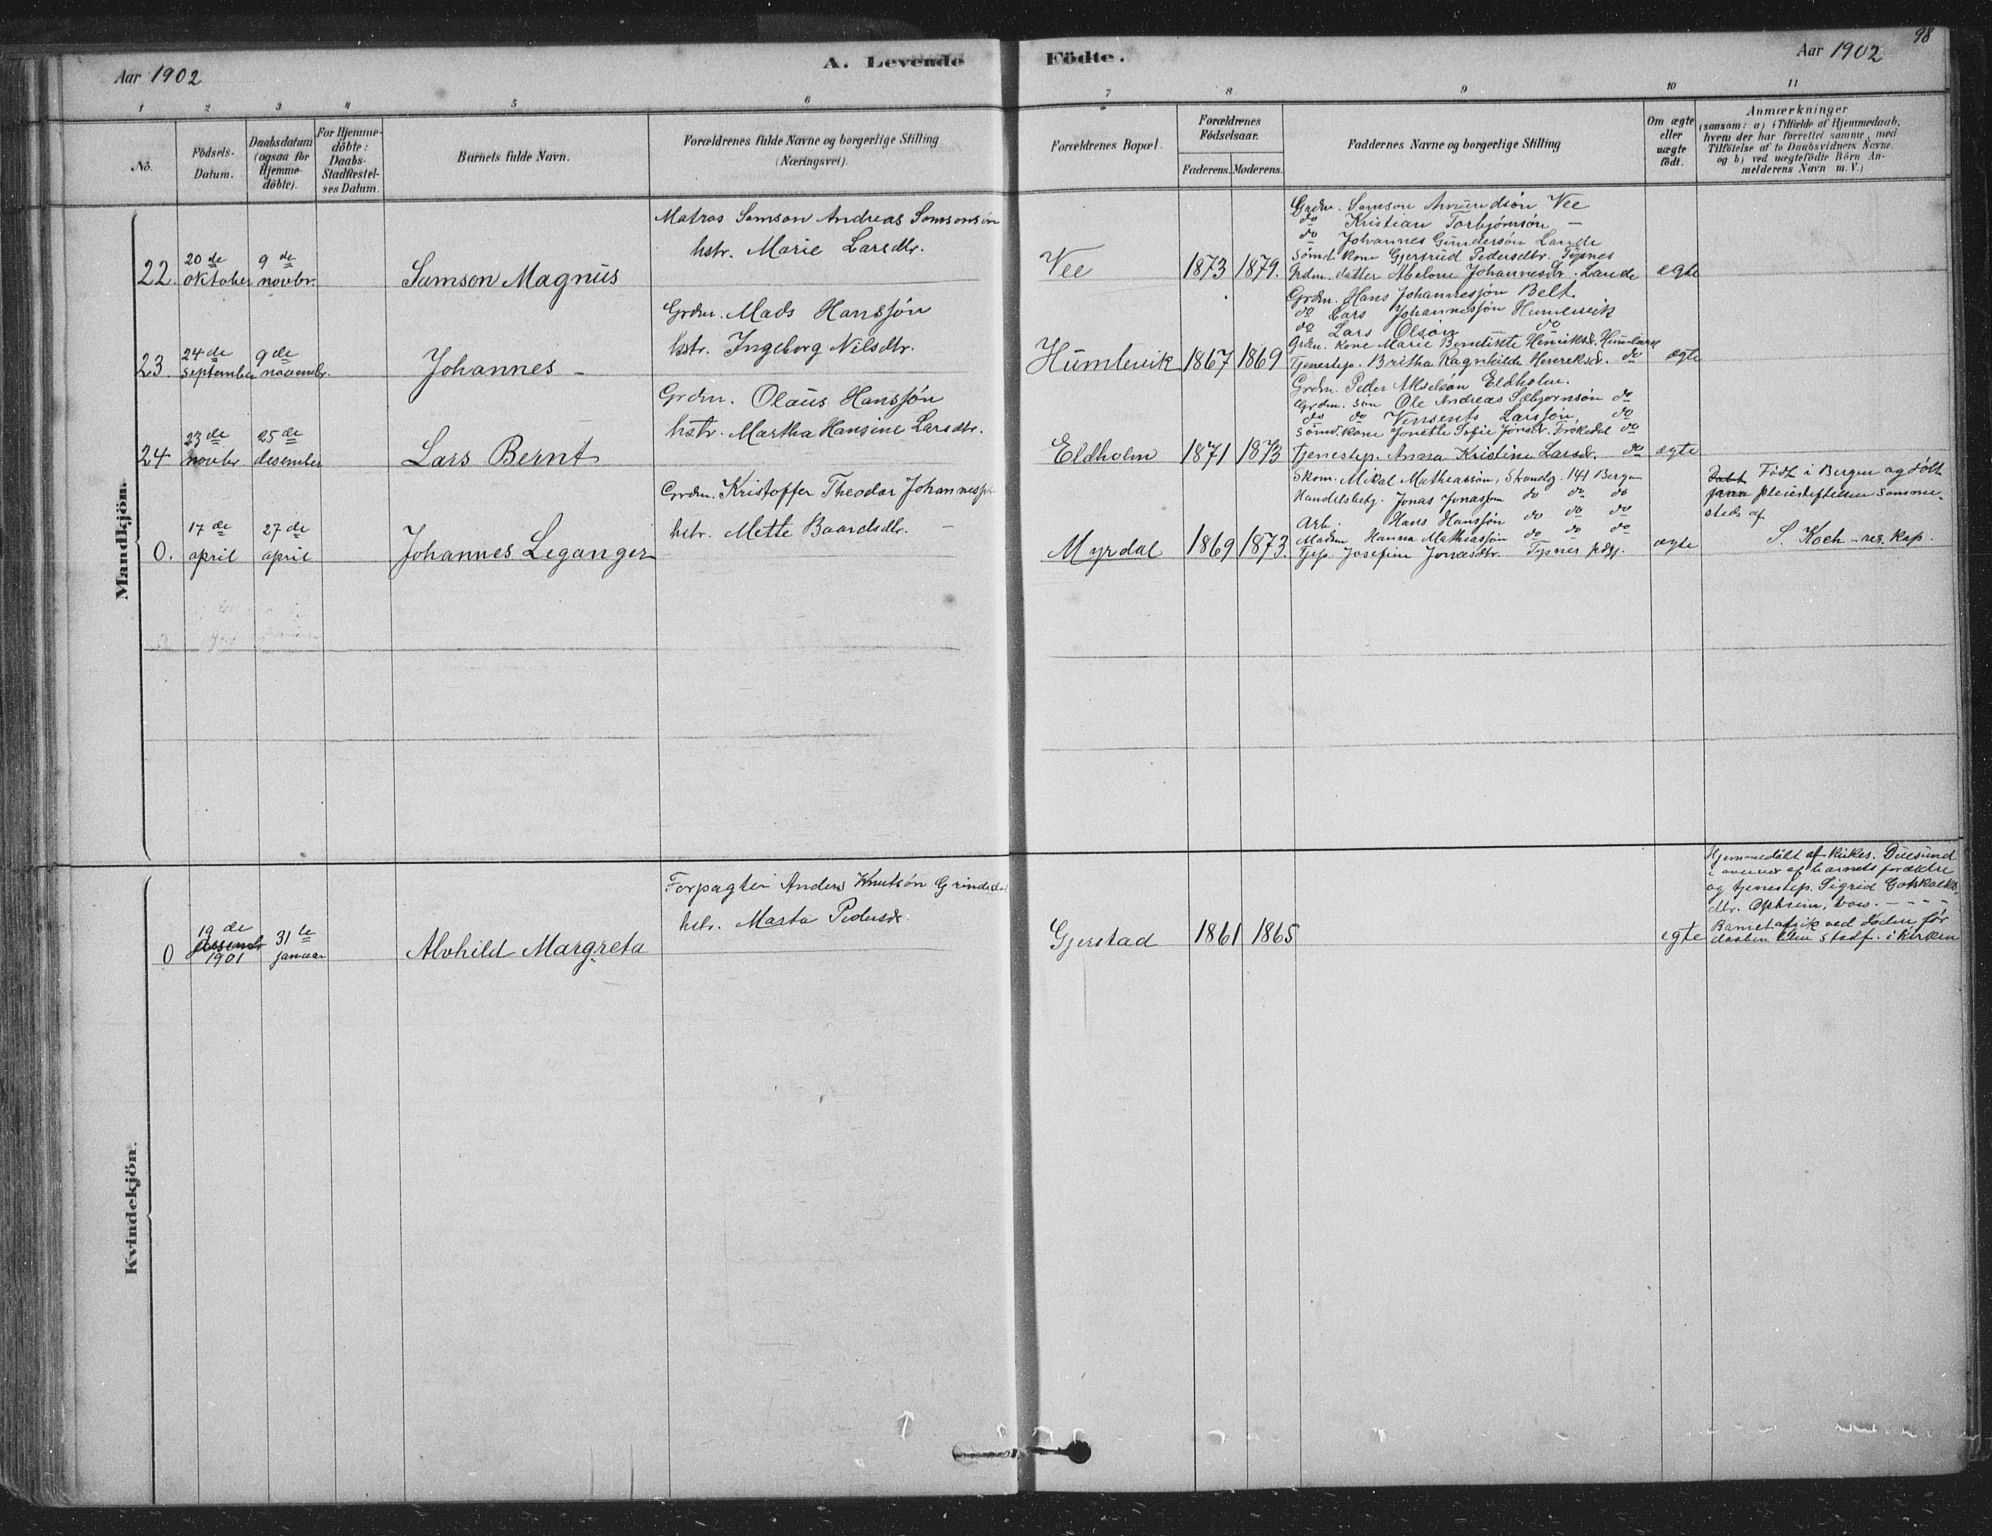 Aar 1902
A. Levende
Födte.
Aar 1902
98
1 2 3 4 5 6 7 8 9 10 11
No.
Födsels-
Datum.
Daabsdatum
(ogsaa for
Hjemme-
döbte).
For Hjemme-
döbte:
Daabs-
Stadfæstel-
ses Datum.
Barnets fulde Navn.
Forældrenes fulde Navne og borgerlige Stilling
(Næringsvei).
Forældrenes Bopæl.
Forældrenes
Födselsaar.
Faderens. Moderens.
Faddernes Navne og borgerlige Stilling
Om ægte
eller
uægte
födt.
Anmærkninger
(saasom: a) i Tilfælde af Hjemmedaab,
hvem der har forrettet samme, med
Tilföielse af to Daabsvidners Navne,
og b) ved uægtefödte Börn An-
melderens Navn m. V.)
Mandkjön.
22.
20de
oktober
9de
novbr.
Samson Magnus
Matros Samson Andreas Samsonsøn
hstr. Marie Larsdtr.
Vee
1873 1879.
Grdm. Samson Amundsøn Vee
do Kristian Torbjørnsøn —
do Johannes Gundersøn Lande
Sømd. kone Gjertrud Pedersdtr. Tysnes
Grdm. datter Abelone Johannesdr. Lande
ægte
23.
24de
september
9de
novembr.
Johannes —
Grdm. Mads Hansjøn
hstr. Ingeborg Nilsdtr.
Humlevik
1867 1869
Grdm. Hans Johannesjøn Belt
do Lars Johannesjøn Humlevik
do Lars Olsøn do
Grdm. kone Marie Bendikte Henriksdr. Humlevik
Tjenestep. Britha Ragnhilda Henriksdr. do
ægte
24
23de
novbr
25de
desember
Lars Bernt
Grdm. Olaus Hansjøn
hstr. Martha Hansine Larsdtr.
Eldholm
1871 1873
Grdm. Peder Akselsøn Eldholm.
Grdm. søn Ole Andreas Sæbjørnsøn do
do do Vinsents Larsjøn. do
Sømd. kone Jonette Sofie Jonsdr. Trøkedal do
Tjenestep. Anna Kristine Larsdr. do
ægte
0.
17de
april
27de
april
Johannes Leganger
Grdm. Kristoffer Theodor Johannesjø.
hstr. Mette Baardsdtr. —
Myrdal
1869 1873.
Skom. Mikal Mathiassøn, Strandg. 141 Bergen
Handelsbetj. Jonas Jonassøn do do do
Arb. Hans Hansjøn do do do
Madm Hanna Mathiassøn do do do
Tjep. Josefine Jonasdtr. Tysnes pdgj.
ægte
Født i Bergen og døbt
i pleiestiftelsen samme-
steds af
S. Koch — res. kap.
Kvindekjön.
0
19de
desembr
1901
31te
januar
Alvhild Margreta
Forpagter Anders Knutsøn Grindedal
hstr. Marta Pedersdr.
Gjerstad
1861 1865
egte
Hjemmedøbt af kirkes. Duesund
i overvær af barnets forældre
og tjenestep. Sigrid Gotskalks-
dtr. Opheim, Voss. — — —
Barnet afgik ved døden før
daaben blev stadf. i kirken